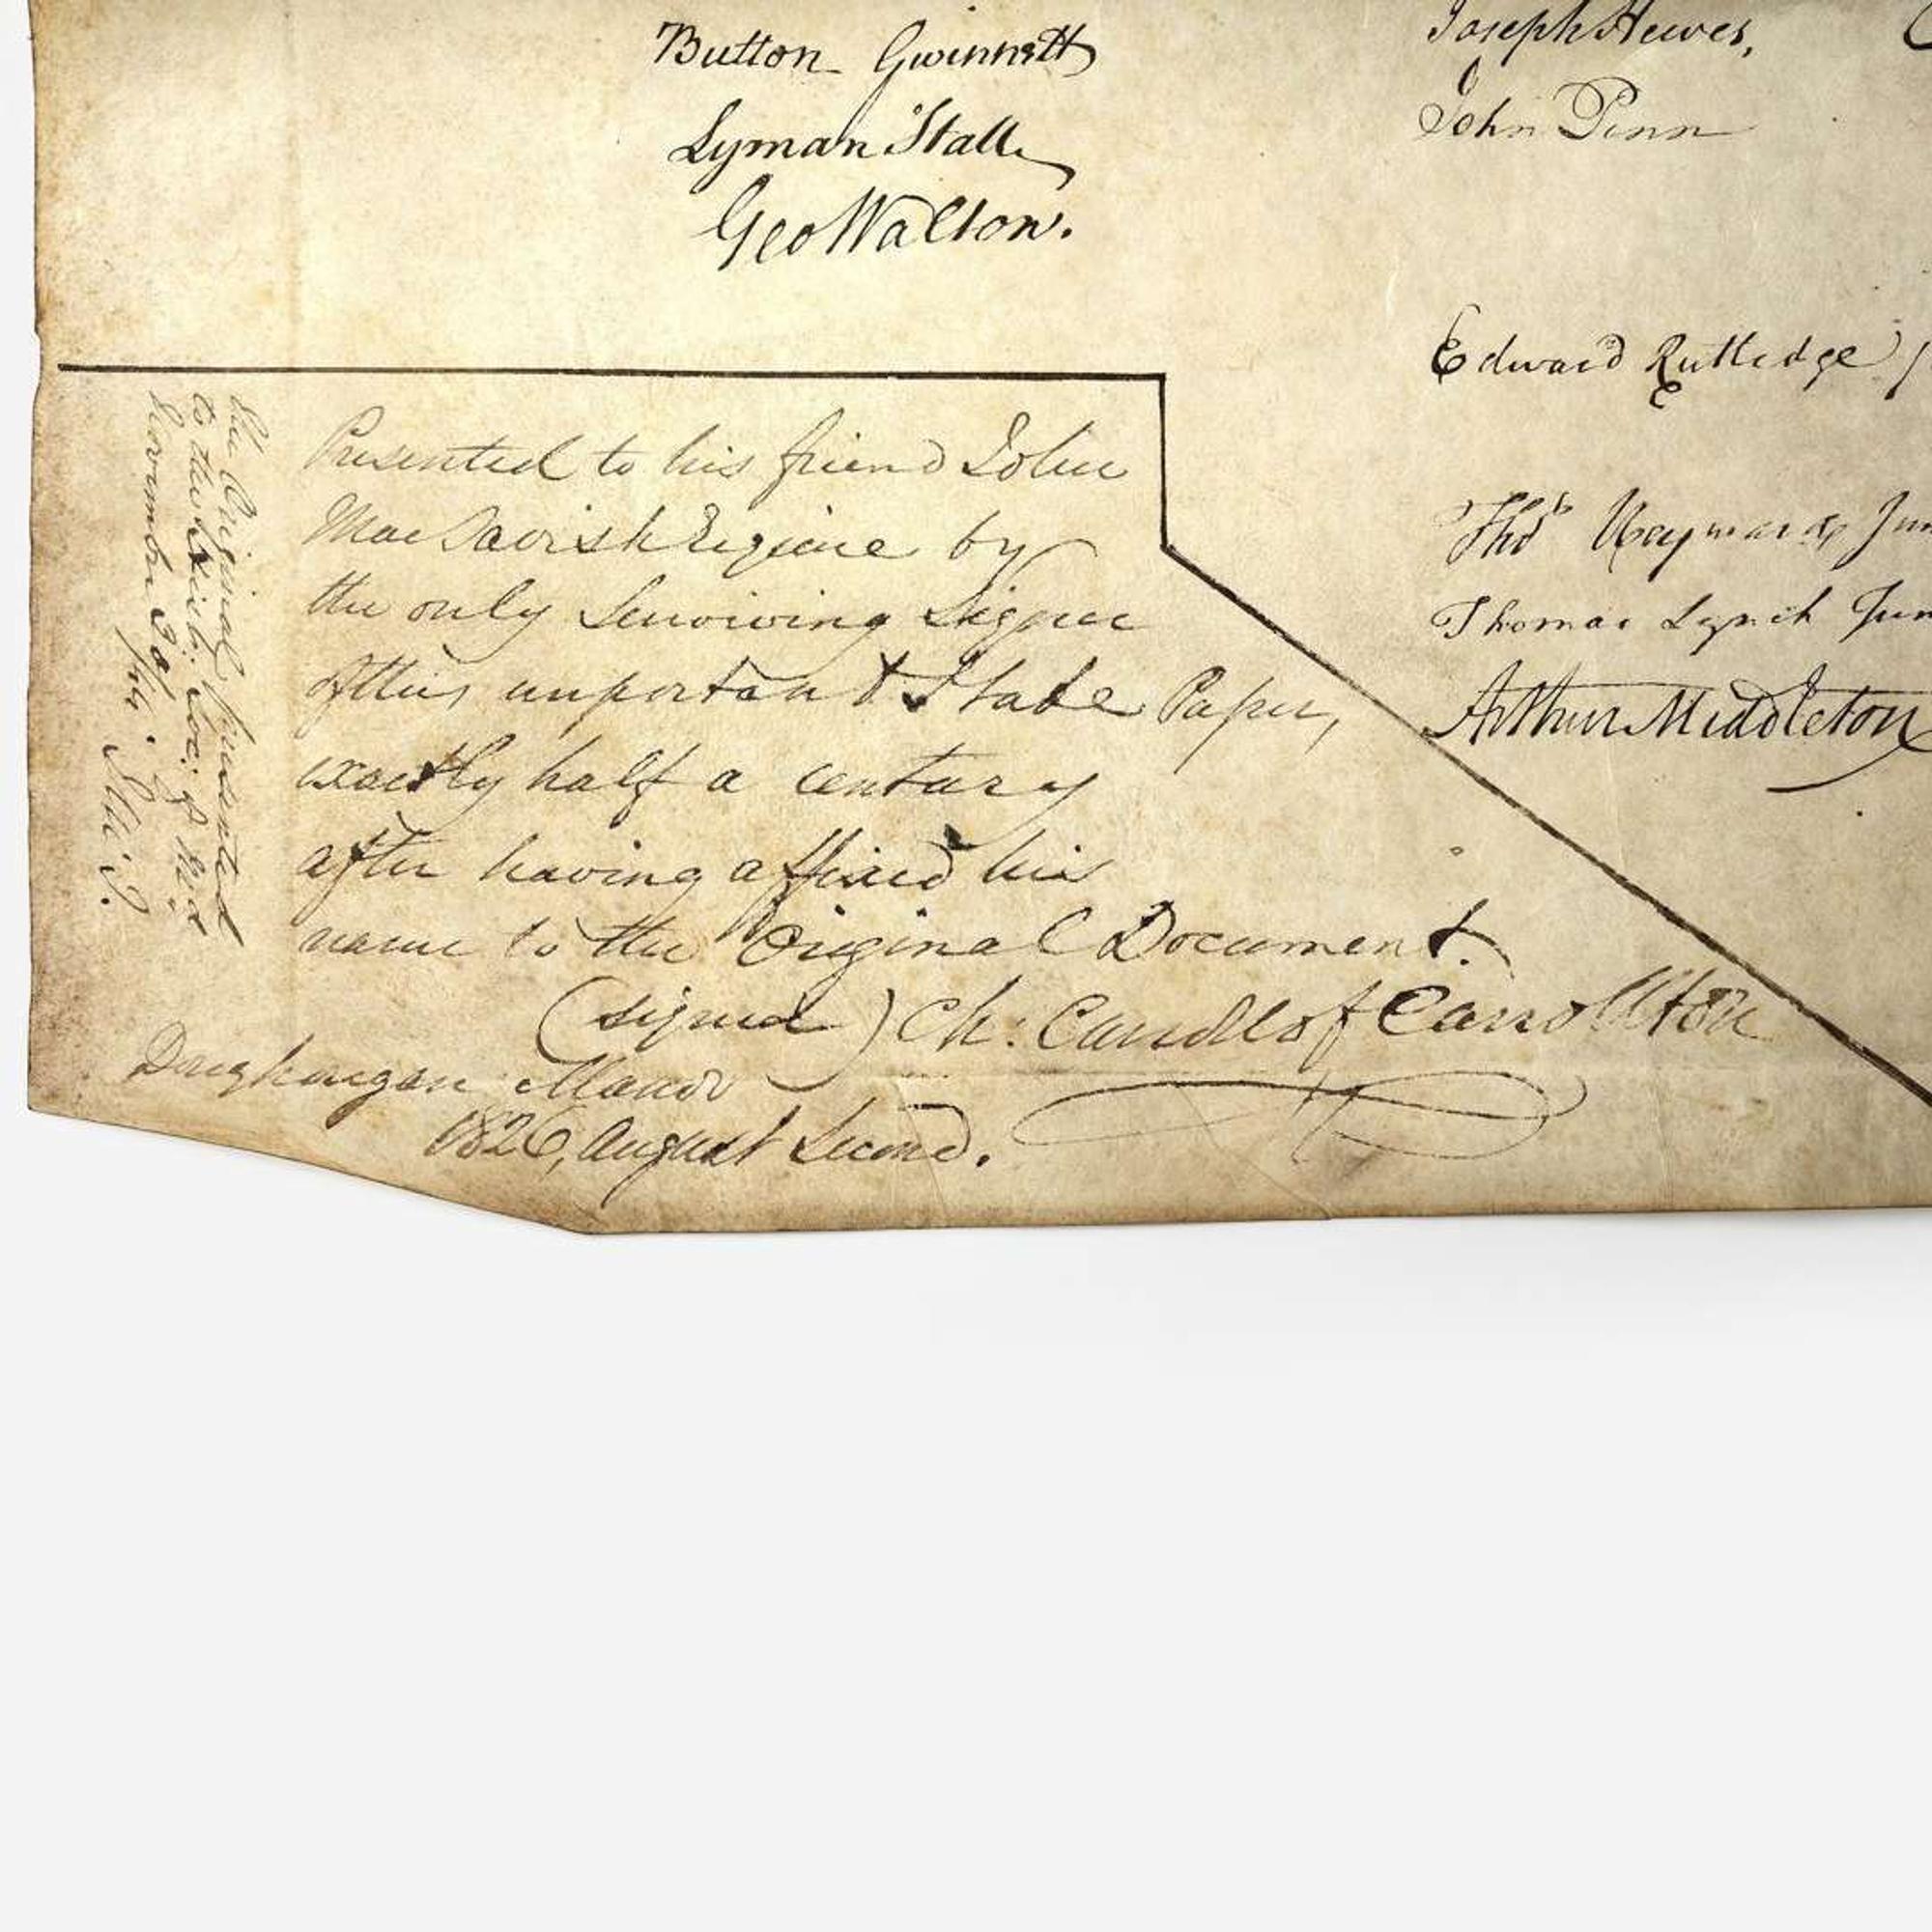 Button Gwinnett
Lyman Hall
Geo Walton.
Joseph Hewes,
John Penn
Edward Rutledge /
Thos Heyward Jun
Thomas Lynch Jun
Arthur Middleton
Presented to his friend John
MacTavish Esquire by
the only Surviving Signer
of this important State Paper,
exactly half a century
after having affixed his
name to the Original Document.
(signed) Ch: Carroll of Carrollton
Doughoregan Manor
1826, August Second.
the Original presented
to the Histl: Soc: of Md
November 30